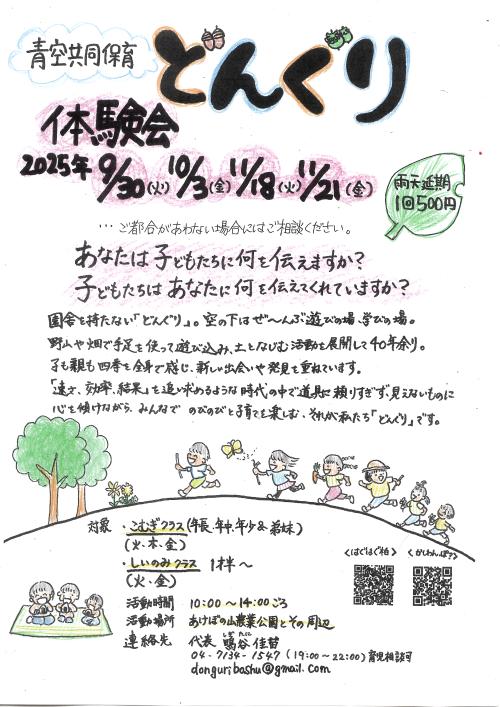 青空共同保育
どんぐり
体験会
2025年 9/30(火) 10/3(金) 11/18(火) 11/21(金)
雨天延期
1回500円
…ご都合があわない場合にはご相談ください。
あなたは子どもたちに何を伝えますか?
子どもたちはあなたに何を伝えてくれていますか?
園舎を持たない「どんぐり」。空の下はぜ〜んぶ遊びの場、学びの場。
野山や畑で手足を使って遊び込み、土となじむ活動を展開して40年余り。
子も親も四季を全身で感じ、新しい出会いや発見を重ねています。
「速さ、効率、結果」を追い求めるような時代の中で道具に頼りすぎず、見えないものに
心を傾けながら、みんなでのびのびと子育てを楽しむ、それが私たち「どんぐり」です。
対象 ・こむぎクラス(年長、年中、年少&弟妹)
(火・木・金)
・しいのみクラス 1才半〜
(火・金)
<はぐはぐ柏> <かしわんぽ?>
活動時間 10:00〜14:00ごろ
活動場所 あけぼの山農業公園とその周辺
連絡先 代表 鴫谷 佳苗
しぎたに
04-7134-1547 (19:00〜22:00) 育児相談可
donguribashu@gmail.com